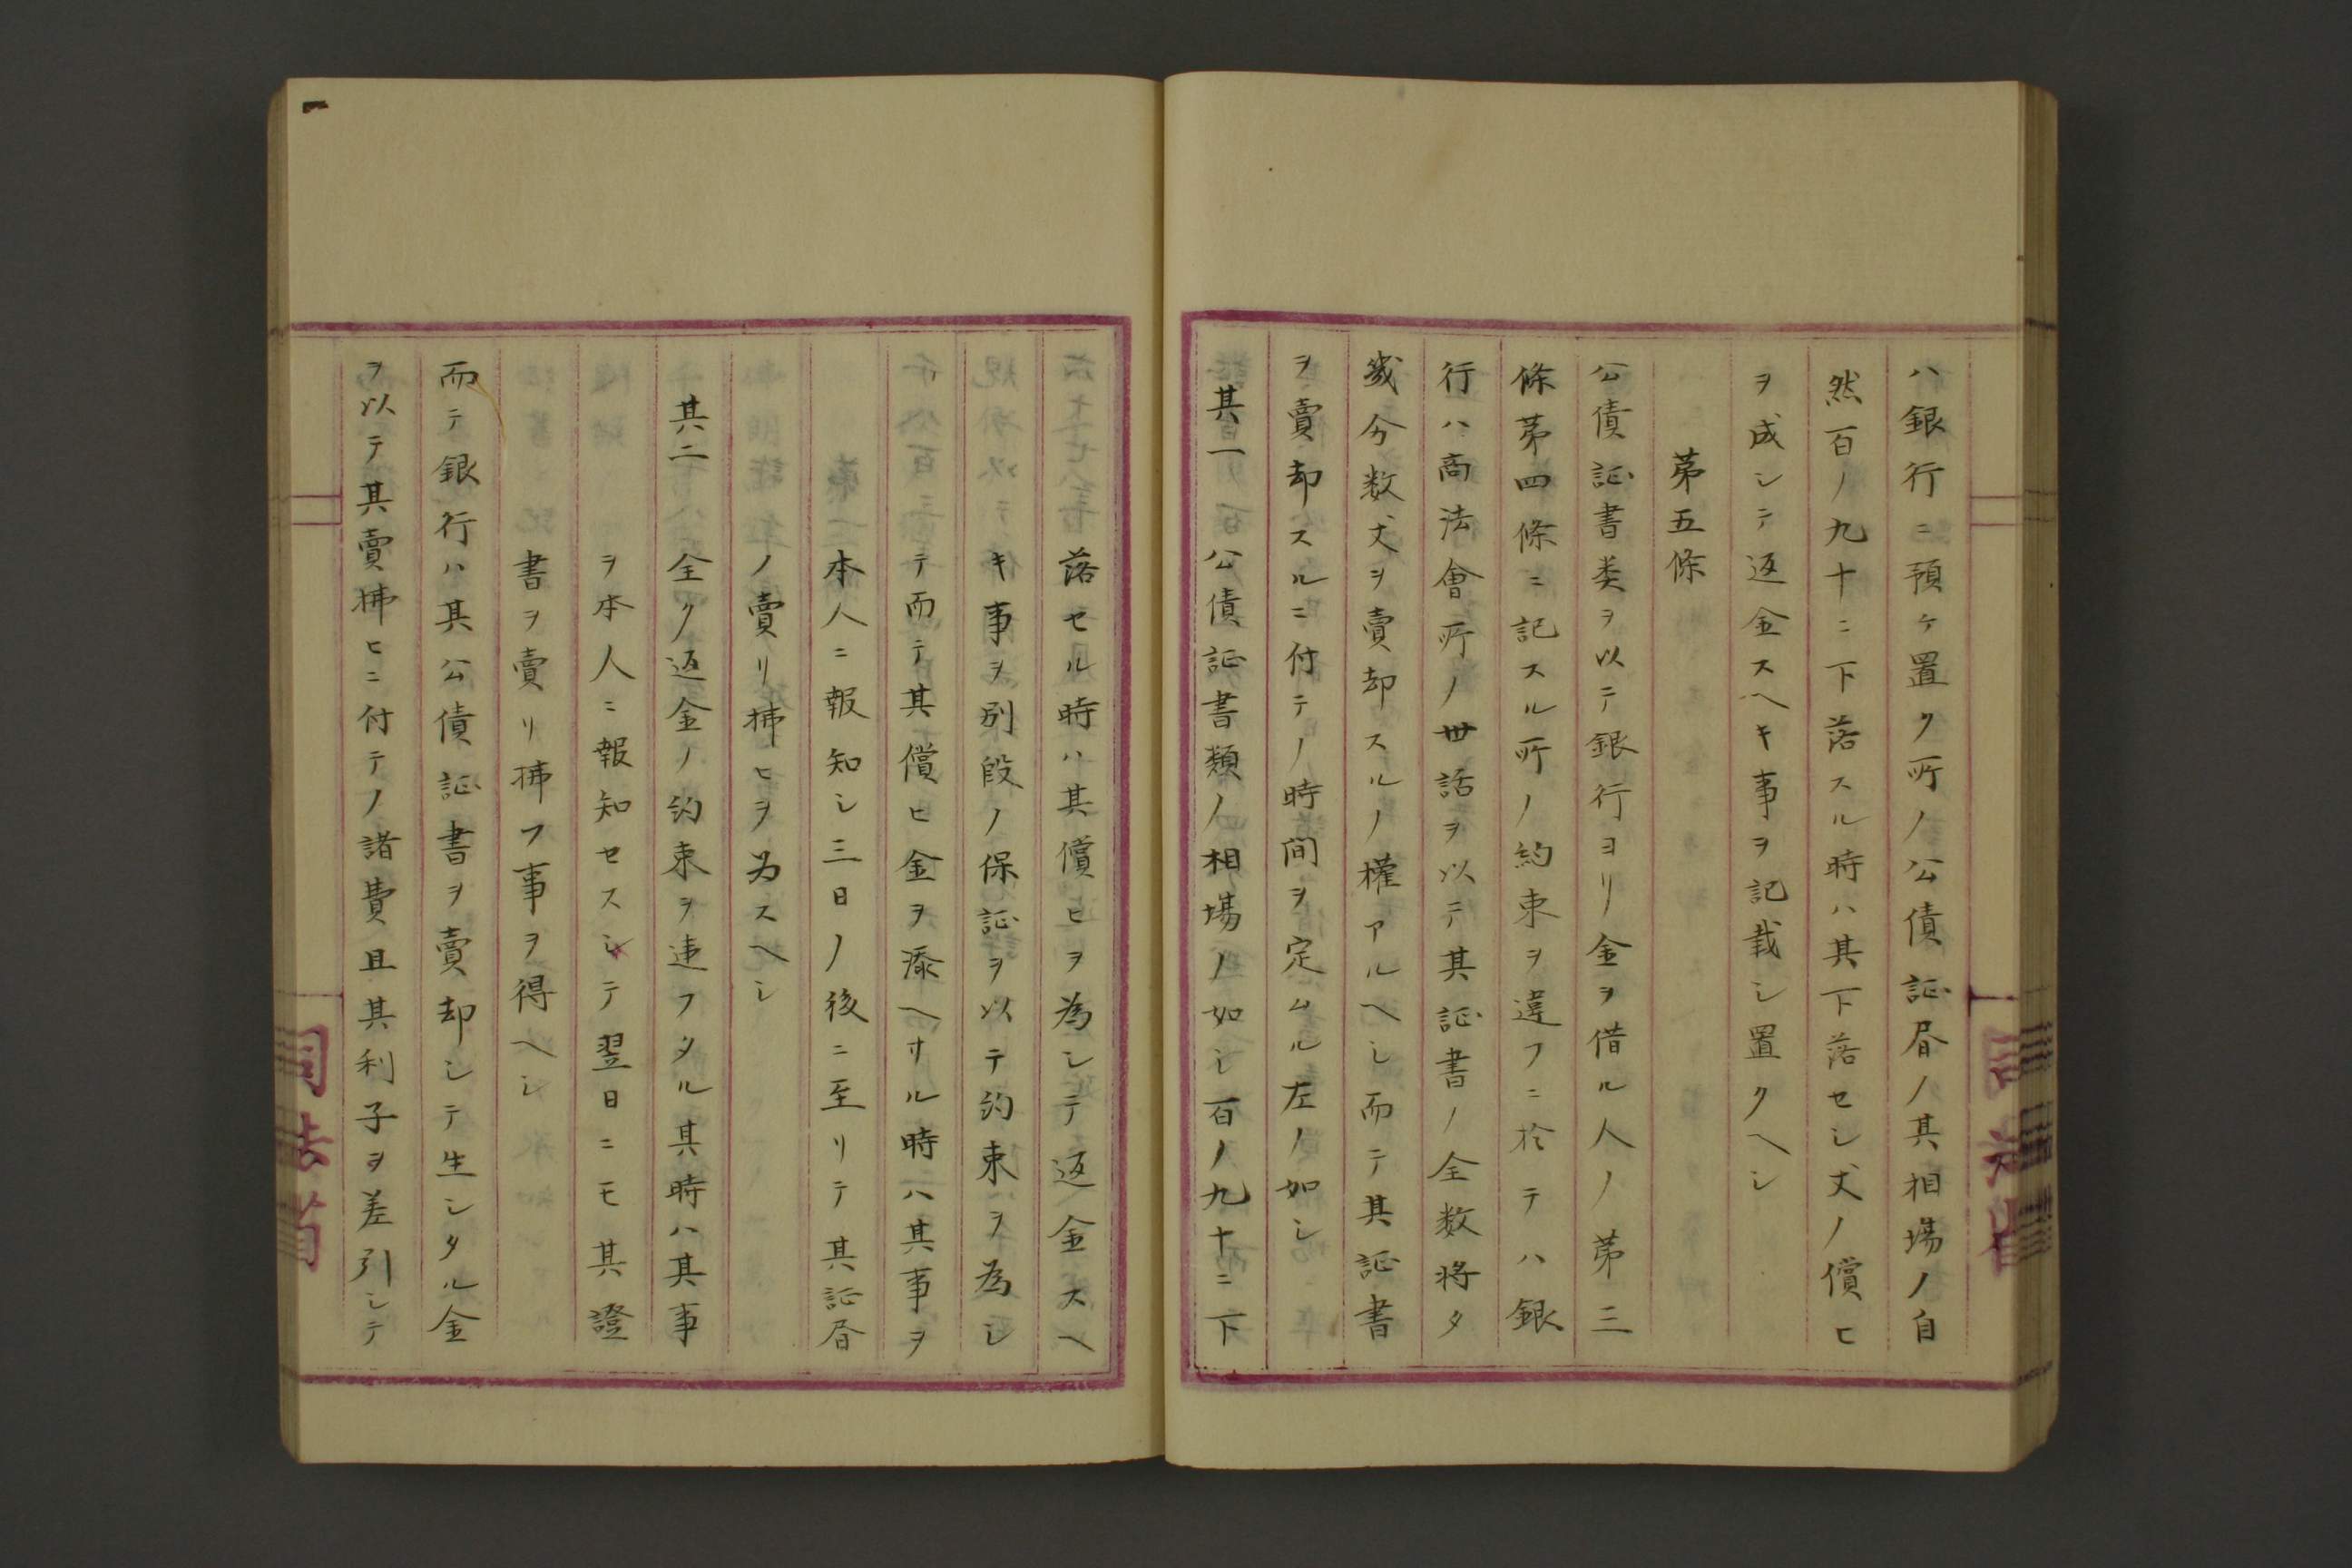 ハ銀行ニ預ケ置ク所ノ公債証昏ノ其相場ノ自
然百ノ九十ニ下落スル時ハ其下落セシ丈ノ償ヒ
ヲ成シテ返金スヘキ事ヲ記載シ置クヘシ
第五條
公債証書类ヲ以テ銀行ヨリ金ヲ借ル人ノ第三
條第四條ニ記スル所ノ約束ヲ違フニ於テハ銀
行ハ商法會所ノ丗話ヲ以テ其証書ノ全数将タ
幾分数丈ヲ賣却スルノ權アルヘシ而テ其証書
ヲ賣却スルニ付テノ時间ヲ定ムル左ノ如シ
其一 公債証書類ノ相場ノ如シ百ノ九十ニ下
落セル時ハ其償ヒヲ為シテ返金スヘ
キ事ヲ別段ノ保証ヲ以テ約束ヲ為シ
テ而テ其償ヒ金ヲ添ヘサル時ハ其事ヲ
本人ニ報知シ三日ノ後ニ至リテ其証昏
ノ賣リ拂ヒヲ为スヘシ
其二 全ク返金ノ約束ヲ違フタル其時ハ其事
ヲ本人ニ報知セスシテ翌日ニモ其證
書ヲ賣リ拂フ事ヲ得ヘシ
而テ銀行ハ其公債証書ヲ賣却シテ生シタル金
ヲ以テ其賣拂ヒニ付テノ諸費且其利子ヲ差引シテ
司法省